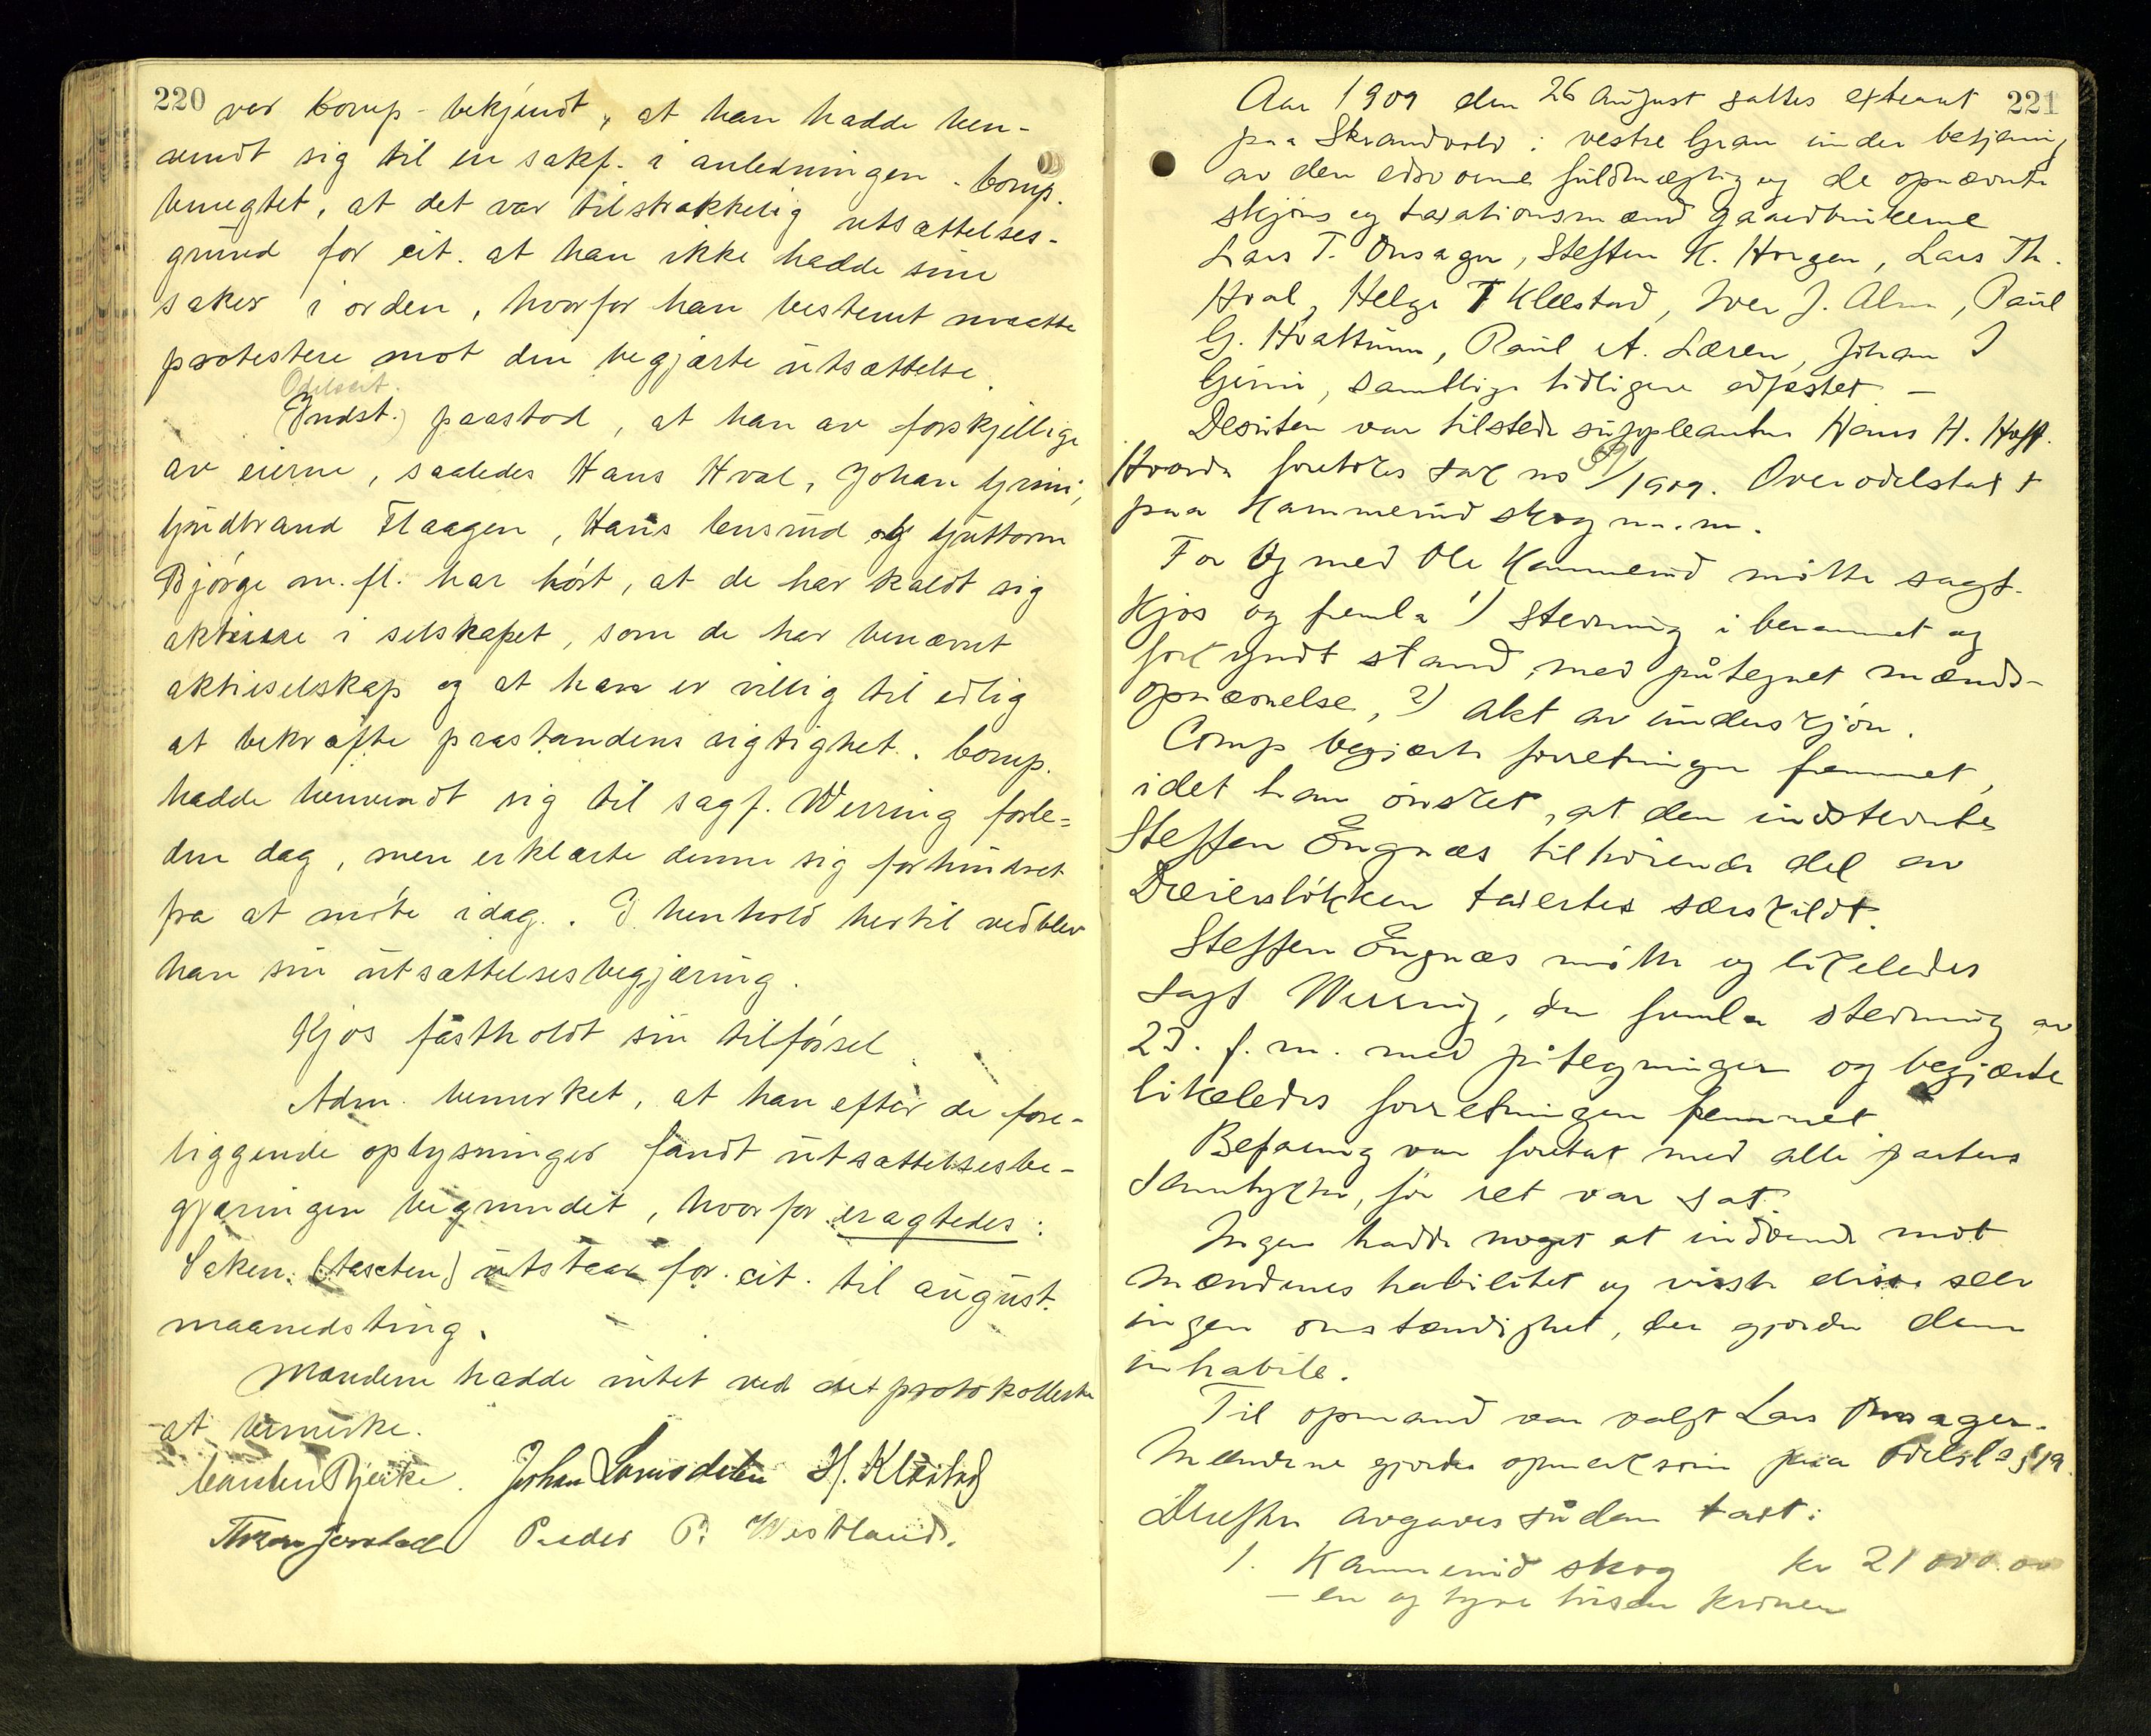 220
var Comp. bekjendt, at han hadde hen-
vendt sig til en sakf. i anledningen. Comp.
benegtet, at det var tilstrækkelig utsættelses-
grund for cit. at han ikke hadde sine
saker i orden, hvorfor han bestemt maatte
protestere mot den begjærte utsættelse.
Odelscit.
(Indst.) paastod, at han av forskjellige
av eierne, saaledes Hans Hval, Johan Grini,
Gudbrand Flaagen, Hans Ensrud og Guttorm
Bjørge m. fl. har hørt, at de har kaldt sig
aktieiere i selskapet, som de har benævnt
aktieselskap og at han er villig til edlig
at bekræfte paastandens rigtighet. Comp.
hadde henvendt sig til sagf. Werring forle-
den dag, men erklærte denne sig forhindret
fra at møte idag. I henhold hertil vedblev
han sin utsættelsesbegjæring.
Kjos fastholdt sin tilførsel
Adm. bemerket, at han efter de fore-
liggende oplysninger fandt utsættelsesbe-
gjæringen begrundet, hvorfor eragtedes:
Saken (taxten) utstaar for cit. til august
maanedsting.
Mændene hadde intet ved det protokollerte
at bemerke.
Carsten Bjerke. Johan H. Klæstad
Peder P. Westland.
221
Aar 1909 den 26 August sattes extraret
paa Skrandvold i vestre Gran under betjening
av den edsvorne fuldmægtig og de opnævnte
skjøns og taxationsmænd gaardbrukerne
Lars T. Onsager, Steffen K. Horgen, Lars Th.
Hval, Helge T Klæstad, Iver J. Alm, Paul
G. Hvattum, Paul A. Læren, Johan I
Grini, samtlige tidligere edfæstet. —
Desuten var tilstede suppleanten Hans H. Hoff.
Hvorda foretokes sak no /1909. Overodelstakst
paa Kammerud skog m.m.
For og med Ole Kammerud møtte sagf.
Kjos og fremla 1) Stevning i berammet og
forkyndt stand, med påtegnet mænds-
opnævnelse, 2) akt av underskjøn.
Comp begjærte forretningen fremmet,
idet han ønsket, at den indstevnte
Steffen Engnæs tilhørende del av
Dreierløkken taxertes særskildt.
Steffen Engnæs møtte og likeledes
Sagf Werring, der fremla stevning av
23. f. m. med påtegninger og begjærte
likeledes forretningen fremmet
Befaring var foretat med alle parters
samtykke, før ret var sat.
Ingen hadde noget at indvende mot
mændenes habilitet og visste disse selv
ingen omstændighet, der gjorde dem
inhabile.
Til opmand var valgt Lars Onsager.
Mændene gjordes opmerksom paa Odelsl.s § 19.
Derefter avgaves sådan takst:
1. Kammerud skog kr 21 000.00
— en og tyve tusen kroner